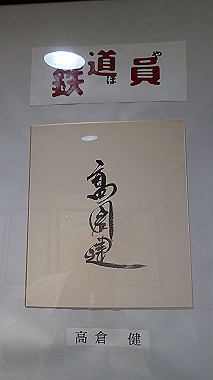 鉄道員
ぽっや
高倉健
高倉 健